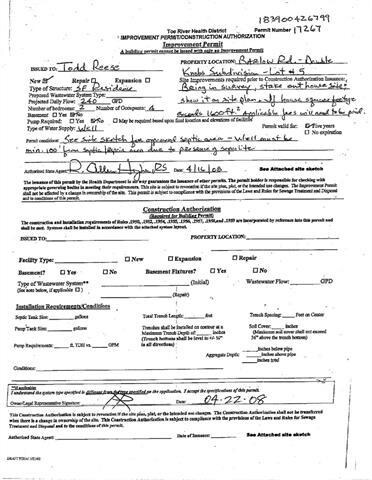 183900426799
Toe River Health District
Permit Number 17267
IMPROVEMENT PERMIT/CONSTRUCTION AUTHORIZATION
Improvement Permit
A building permit cannot be issued with only an Improvement Permit
ISSUED TO: Todd Reese PROPERTY LOCATION:
Subdivision - Lot # 5
New Repair Expansion Site Improvements required prior to Construction Authorization Issuance:
Type of Structure: SF Residence Bring in survey, stake out house site
Proposed Wastewater System Type:
Projected Daily Flow: 240 GPD show it on site plan. If house square footage
Number of bedrooms: 2 Number of Occupants: 4 exceeds 1600 ft² applicable fees will need to be paid.
Basement Yes No
Pump Required: Yes No May be required based upon final location and elevations of facilities
Type of Water Supply: Well Permit valid for: Five years
No expiration
Permit conditions: See site sketch for approved septic area - Well must be
min. 100' from septic/repair area due to presence of saprolite
Authorized State Agent: Date: 4/16/08 See Attached site sketch
The issuance of this permit by the Health Department in no way guarantees the issuance of other permits. The permit holder is responsible for checking with
appropriate governing bodies in meeting their requirements. This site is subject to revocation if the site plan, plat, or the intended use changes. The Improvement Permit
shall not be affected by a change in ownership of the site. This permit is subject to compliance with the provisions of the Laws and Rules for Sewage Treatment and Disposal
and to conditions of this permit.
Construction Authorization
(Required for Building Permit)
The construction and installation requirements of Rules .1950, .1952, .1954, .1955, .1956, .1957, .1958, and .1959 are incorporated by reference into this permit and
shall be met. Systems shall be installed in accordance with the attached system layout.
ISSUED TO: PROPERTY LOCATION:
Facility Type: New Expansion Repair
Basement? Yes No Basement Fixtures? Yes No
Type of Wastewater System** (Initial) Wastewater Flow: GPD
(See note below, if applicable)
(Repair)
Installation Requirements/Conditions
Septic Tank Size: gallons Total Trench Length: feet Trench Spacing: Feet on Center
Pump Tank Size: gallons Trenches shall be installed on contour at a Soil Cover: inches
Maximum Trench Depth of: inches (Maximum soil cover shall not exceed
(Trench bottoms shall be level to +/- ¼" 36" above the trench bottom)
Pump Requirements: ft. TDH vs. GPM in all directions)
inches below pipe
Aggregate Depth: inches above pipe
inches total
Conditions:
**If applicable
I understand the system type specified is different from the type specified on the application. I accept the specifications of this permit.
Owner/Legal Representative Signature: Date: 04-22-08
This Construction Authorization is subject to revocation if the site plan, plat, or the intended use changes. The Construction Authorization shall not be transferred
when there is a change in ownership of the site. This Construction Authorization is subject to compliance with the provisions of the Laws and Rules for Sewage
Treatment and Disposal and to the conditions of this permit.
Authorized State Agent: Date of Issuance: See Attached site sketch